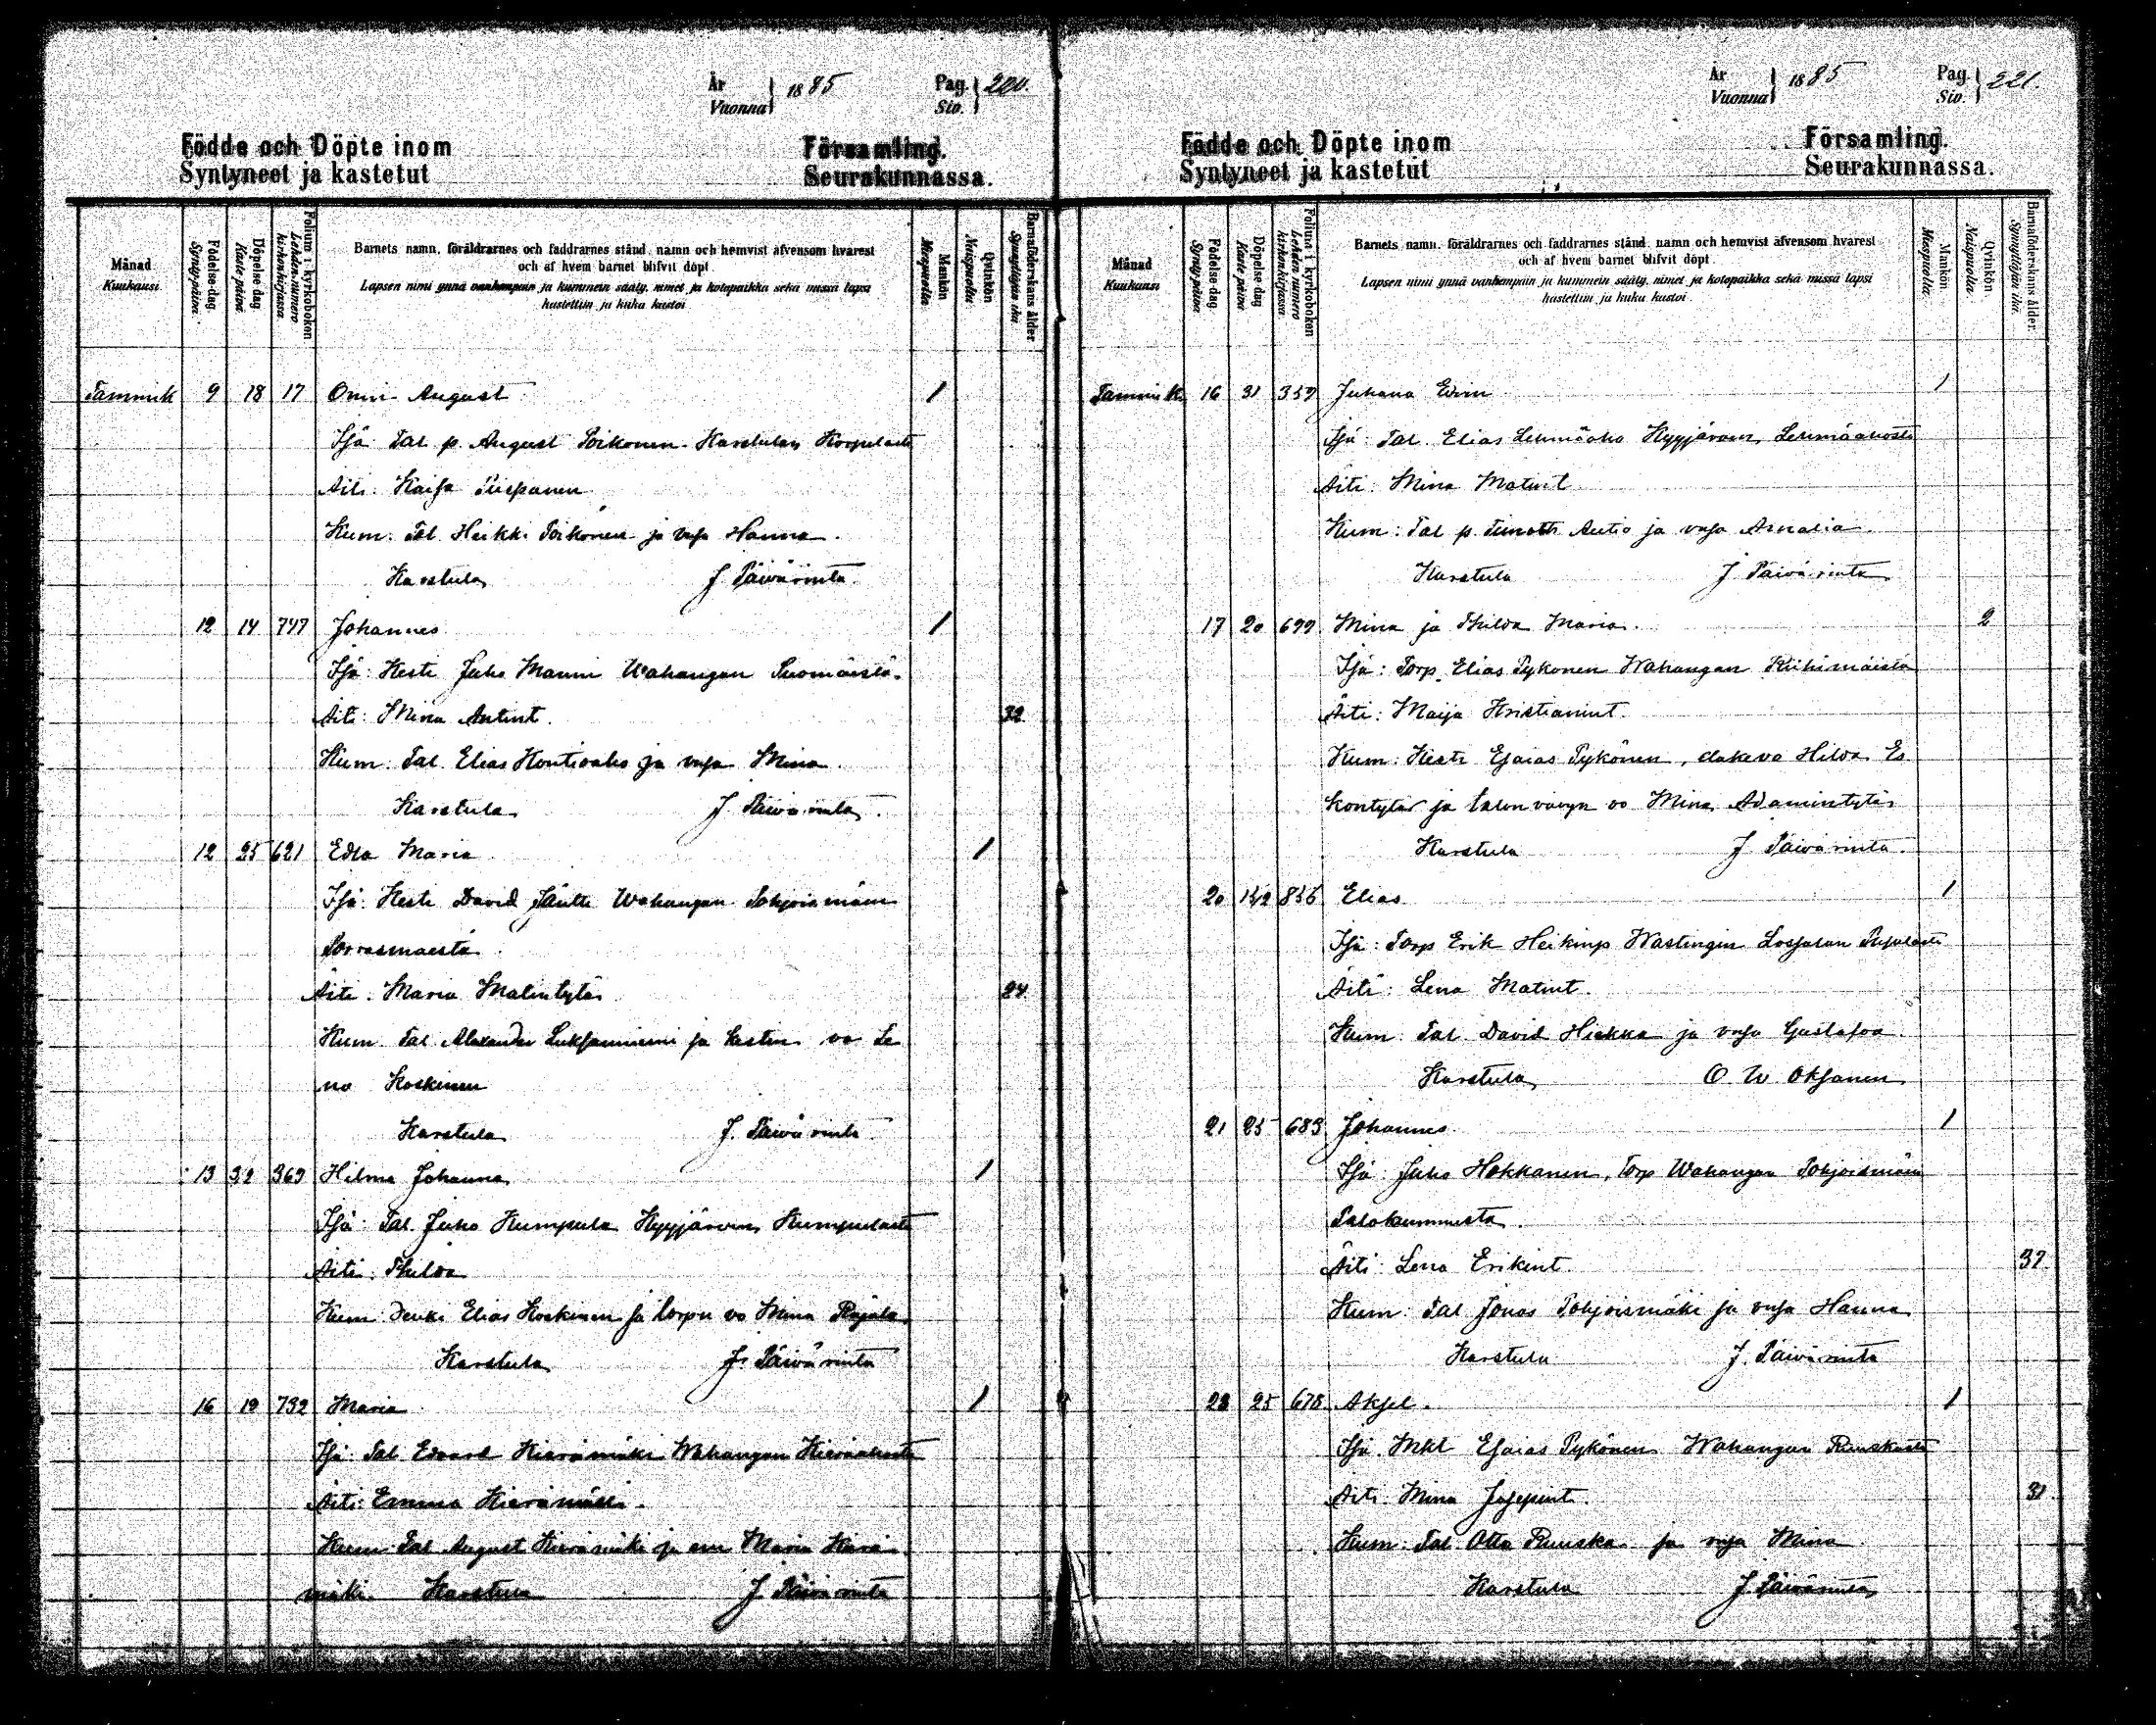 År
Vuonna 1885
Pag.
Siv. 220.
Födde och Döpte inom Församling.
Syntyneet ja kastetut Seurakunnassa.
Månad
Kuukausi
Födelse-dag
Syntypäivä
Döpelse dag
Kastepäivä
Folium i kyrkoboken
Lehden-numero kirkonkirjassa
Barnets namn, föräldrarnes och faddrarnes stånd, namn och hemvist äfvensom hvarest
och af hvem barnet blifvit döpt.
Lapsen nimi ynnä vanhempain ja kummein sääty, nimet ja kotopaikka sekä missä lapsi
kastettiin ja kuka kastoi.
Mankön
Miespuolia
Qvinkön
Naispuolia
Barnaföderskans ålder
Synnyttäjän ikä
Tammik 9 18 17 Onni August 1
Isä: Tal. p. August Poikonen Karstulan Korpelasta
Äiti: Kaisa Piispanen
Kum: Tal. Heikki Poikonen ja vaja Hanna.
Karstula J. Päivärinta.
12 14 747 Johannes 1
Isä: Kesti Juho Manni Wahangan Suomäestä.
Äiti: Mina Antint. 32
Kum: Tal. Elias Kontioaho ja vaja Mina
Karstula J. Päivärinta.
12 25 621 Edla Maria 1
Isä: Kesti David Jäntti Wahangan Pohjoismäen
Porrasmaesta.
Äiti: Maria Malintytär 24
Kum. Tal. Alexander ja kestin vo Le
na Koskinen
Karstula J. Päivärinta
13 363 Hilma Johanna 1
Isä: Tal. Juho Kumpula Kyyjärven Kumpulasta
Äiti: Thilda
Kum: Renki Elias Koskinen ja torpn vo Mina Rajala
Karstula J. Päivärinta
16 19 732 Maria 1
Isä: Tal. Edvard Hierämäki Wahangan
Äiti: Emma Hierämäki.
Kum: Tal. August Hierämäki ja em Maria Hierä
mäki. Karstula J. Päivärinta
År
Vuonna 1885
Pag.
Siv. 221.
Födde och Döpte inom Församling.
Syntyneet ja kastetut Seurakunnassa.
Månad
Kuukausi
Födelse dag
Syntypäivä
Döpelse dag
Kastepäivä
Folium i kyrkoboken
Lehden numero kirkonkirjassa
Barnets namn, föräldrarnes och faddrarnes stånd, namn och hemvist äfvensom hvarest
och af hvem barnet blifvit döpt.
Lapsen nimi ynnä vanhempain ja kummein sääty, nimet ja kotopaikka sekä missä lapsi
kastettiin ja kuka kastoi.
Mankön
Miespuolia
Qvinkön
Naispuolia
Barnaföderskans ålder.
Synnyttäjän ikä.
Tammik. 16 31 359 Juhana Eevin 1
Isä: Tal. Elias Lehmäaho Kyyjärven Lehmäaholta
Äiti: Mina Matint
Kum: Tal p. Autio ja vaja Amalia
Karstula J. Päivärinta
17 20 699 Mina ja Thilda Maria. 2
Isä: Torp. Elias Pykönen Wahangan Riihimäistä
Äiti: Maija Kristianint.
Kum: Kesti Esaias Pykönen, Hilda Es
kontytär ja talon vävyn vo Mina Adamintytär
Karstula J. Päivärinta.
20 15/2 836 Elias 1
Isä: Torp Erik Heikinp Wastingin
Äiti: Lena Matint.
Kum: Tal. David Hiekka ja vaja Gustafva
Karstula O. W. Oksanen
21 25 683 Johannes 1
Isä: Juho Hokkanen, Torp Wahangan Pohjoismäen
Palokunnusta.
Äiti: Lena Erikint. 37
Kum: Tal Jonas Pohjoismäki ja vaja Hanna
Karstula J. Päivärinta
23 25 678 Aksel. 1
Isä: Mkl Esaias Pykönen Wahangan Ruuskasta
Äiti: Mina Josepint. 31
Kum: Tal. Otto Ruuska ja vaja Mina
Karstula J. Päivärinta